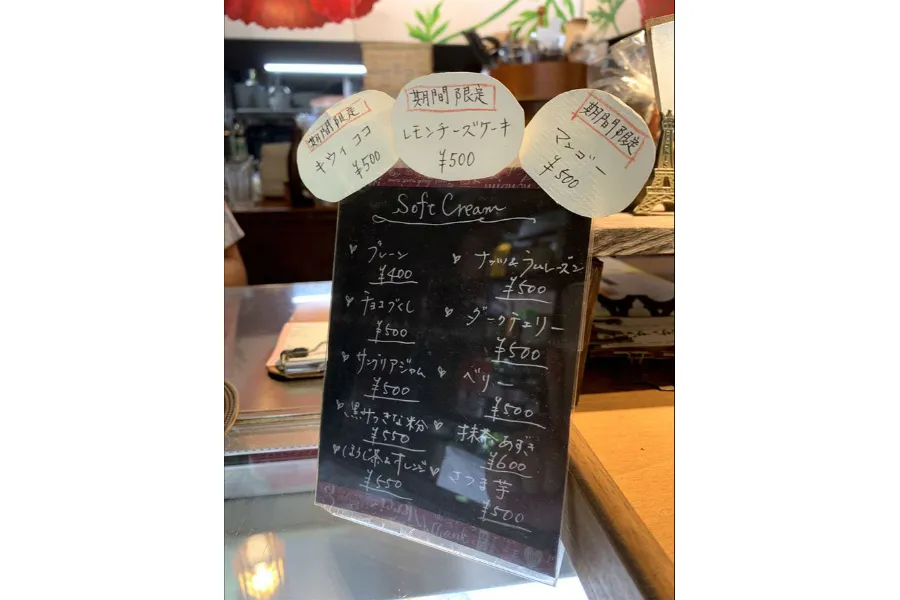 期間限定
キウイココ
¥500
期間限定
レモンチーズケーキ
¥500
期間限定
マンゴー
¥500
Soft Cream
プレーン
¥400
チョコづくし
¥500
サングリアジャム
¥500
¥550
ほうじ茶&オレンジ
¥550
ナッツ&ラムレーズン
¥500
ダークチェリー
¥500
ベリー
¥500
抹茶あずき
¥600
さつま芋
¥500